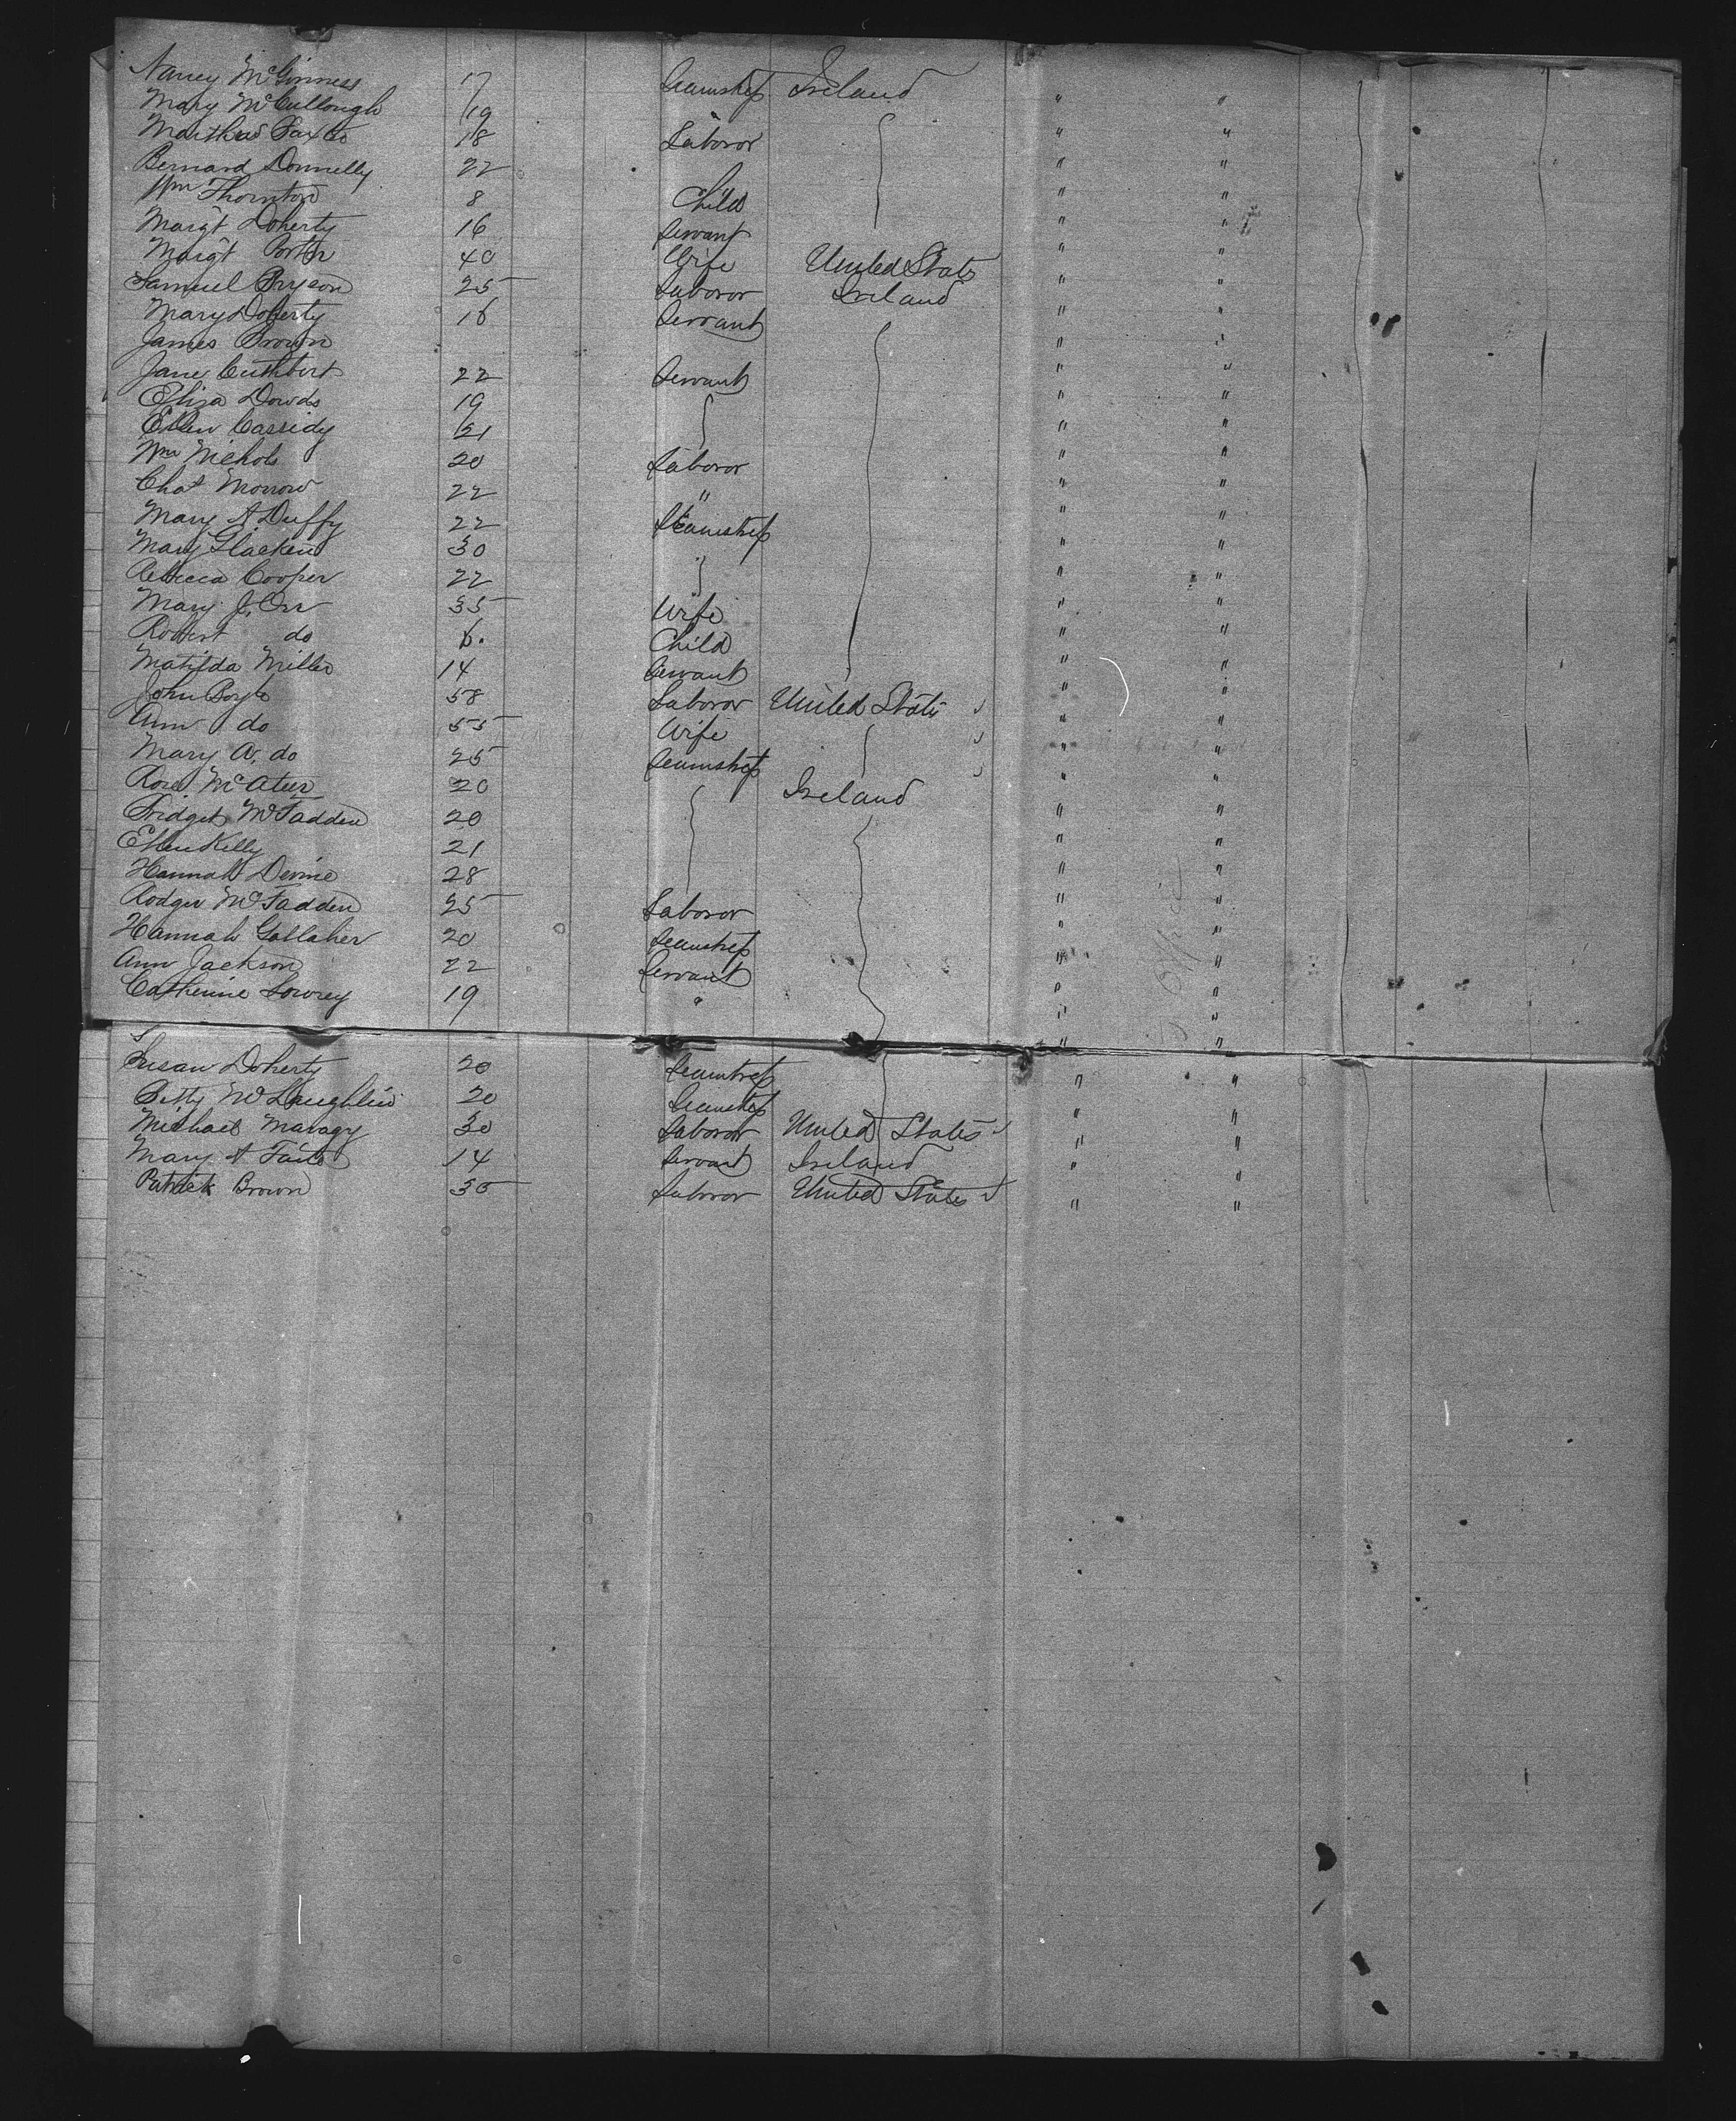 Nancy McGinness 17 Seamstress Ireland
Mary McCullough 19 " " "
Matthew 18 Laboror " "
Bernard Donnelly 22 " " "
Wm Thornton 8 Child " "
Margt Doherty 16 Servant " "
Margt Porter 40 Wife United States " "
Samuel Bryson 25 Laboror Ireland " "
Mary Doherty 16 Servant " "
James Brown " "
Jane Cuthbert 22 Servant " "
Eliza Dowds 19 " "
Ellen Cassidy 21 " "
Wm Nichols 20 Laboror " "
Chas Morrow 22 " " "
Mary A Duffy 22 Seamstress " "
Mary Glacken 30 " "
Rebecca Cooper 22 " "
Mary J. Orr 35 Wife " "
Robert do 6. Child " "
Matilda Miller 14 Servant " "
John Boyle 58 Laboror United States " "
Ann do 55 Wife " "
Mary A. do 25 Seamstress " "
Rose McAteer 20 Ireland " "
Bridget McFadden 20 " "
Ellen Kelly 21 " "
Hannah Devine 28 " "
Rodger McFadden 25 Laboror " "
Hannah Gallaher 20 Seamstress " "
Ann Jackson 22 Servant " "
Catherine Lowrey 19 " " "
Susan Doherty 20 Seamstress " "
Betty McLaughlin 20 Seamstress " "
Michael 30 Laboror United States " "
Mary A 14 Servant Ireland " "
Patrick Brown 35 Laboror United States " "